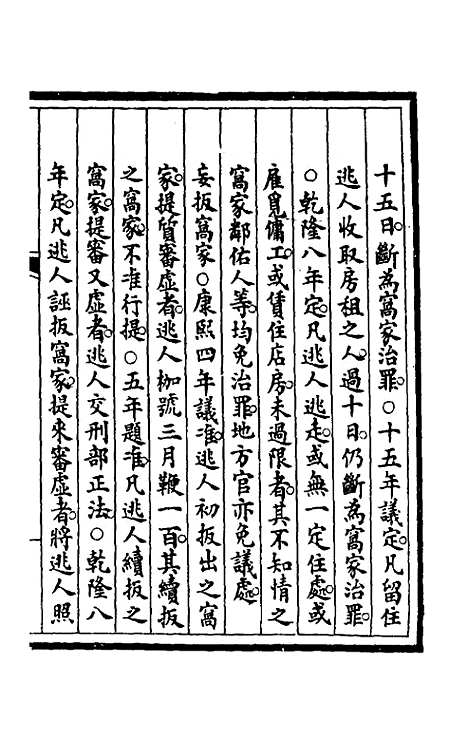 十五日。斷為窩家治罪。○十五年議定。凡留住
逃人收取房租之人。過十日。仍斷為窩家治罪。
○乾隆八年定。凡逃人逃走。或無一定住處。或
雇覓傭工。或賃住店房。未過限者。其不知情之
窩家鄰佑人等。均免治罪。地方官亦免議處。
妄扳窩家○康熙四年議准。逃人初扳出之窩
家。提質審虛者。逃人枷號三月鞭一百。其續扳
之窩家。不准行提。○五年題准。凡逃人續扳之
窩家。提審又虛者。逃人交刑部正法。○乾隆八
年定。凡逃人誣扳窩家。提來審虛者。將逃人照